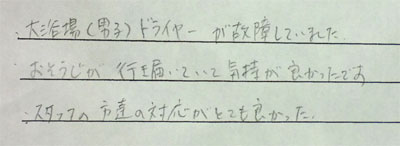 ・大浴場(男子)ドライヤーが故障していました。
・おそうじが行き届いていて気持が良かったです
・スタッフの方達の対応がとても良かった。